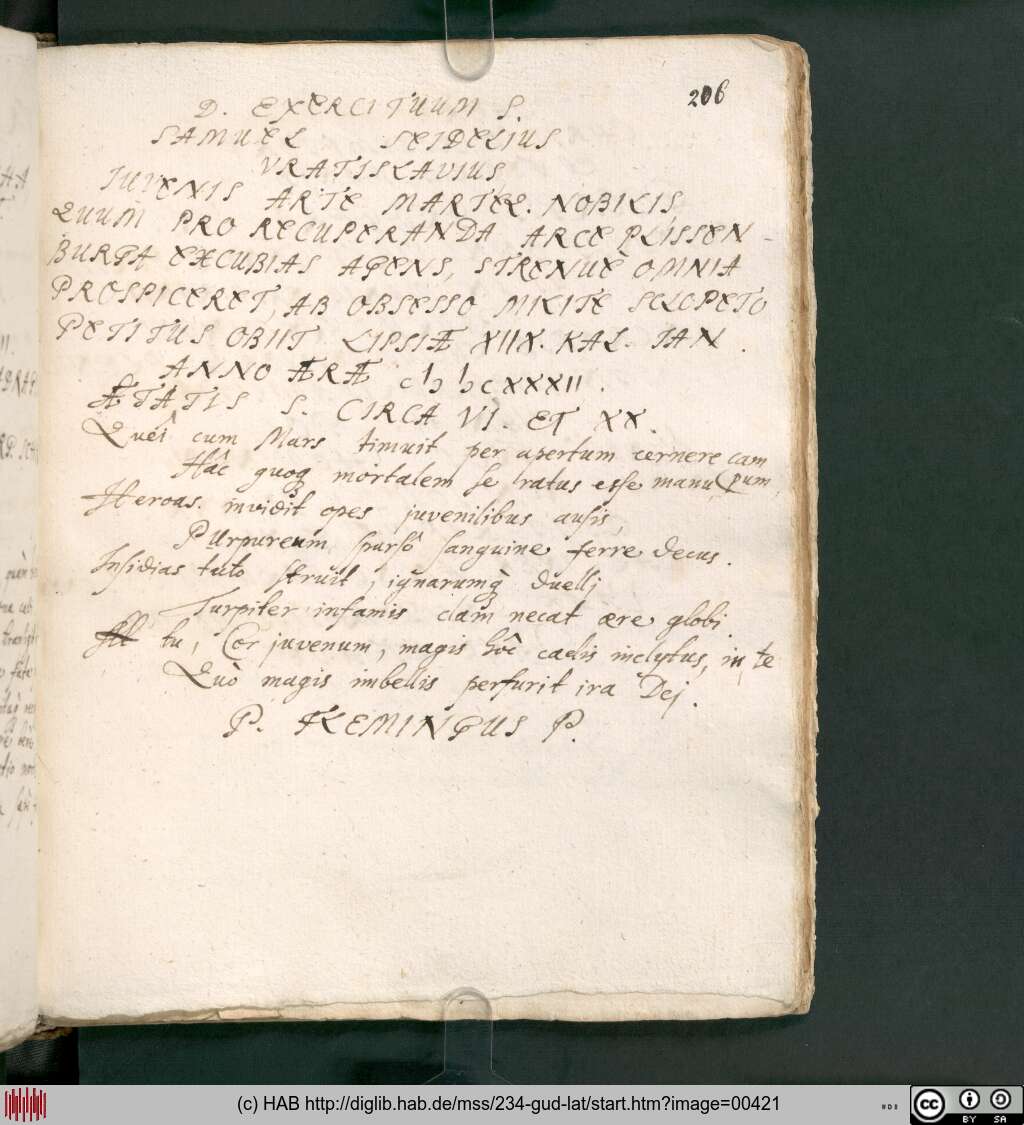 206
D. EXERCITUUM S.
SAMUEL SEIDELIUS
VRATISLAVIUS
IUVENIS ARTE MARTEQ. NOBILIS,
QUUM PRO RECUPERANDA ARCE PLISSEN-
BURGA EXCUBIAS AGENS, STRENUÈ OMNIA
PROSPICERET, AB OBSESSO MILITE SCLOPETO
PETITUS OBIIT LIPSIÆ XIIX. KAL. IAN.
ANNO ÆRÆ cIɔ Iɔc XXXII.
ÆTATIS S. CIRCA VI. ET XX.
Quêi cum Mars timuit per apertum cernere cam
Hâc quoq mortalem se ratus esse manu (pum,
Heroas. invidit opes juvenilibus ausis,
Purpureum sparsô sanguine ferre decus.
Insidias tuto struit, ignarumq duellj
Turpiter infamis clam necat ære globi.
At tu, Cor juvenum, magis hôc cædis inclytus, in te
Quò magis imbellis perfurit ira Dej.
P. FLEMINGUS P.
(c) HAB http://diglib.hab.de/mss/234-gud-lat/start.htm?image=00421
cc
BY SA